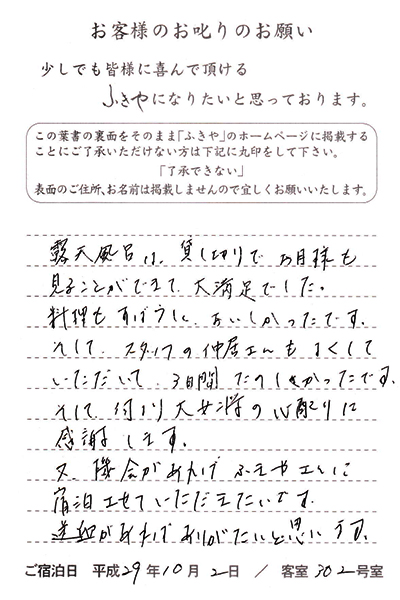 お客様のお叱りのお願い
少しでも皆様に喜んで頂ける
ふきやになりたいと思っております。
この葉書の裏面をそのまま「ふきや」のホームページに掲載する
ことにご了承いただけない方は下記に丸印をして下さい。
「了承できない」
表面のご住所、お名前は掲載しませんので宜しくお願いいたします。
露天風呂は、貸し切りで お月様も
見ることができて、大満足でした。
料理もすばらしく、おいしかったです。
そして、スタッフの仲居さんもよくして
いただいて、3日間 たのしかったです。
そして、何より大女将の心配りに
感謝します。
又、機会があれば ふきやさんに
宿泊させていただきたいです。
があれば ありがたいと思います。
ご宿泊日 平成29年10月2日 / 客室302号室